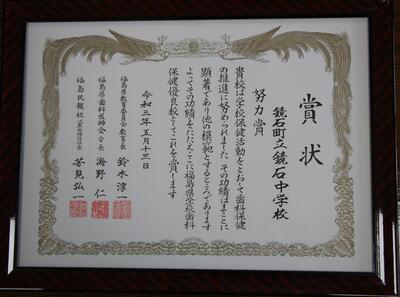 賞状
鏡石町立鏡石中学校
努力賞
貴校は学校保健活動をとおして歯科保健
の推進に努められました その功績はまことに
顕著であり他の模範とするところであります
よってその功績をたたえここに福島県学校歯科
保健優良校としてこれを賞します
令和三年五月十三日
福島県教育委員会教育長 鈴木淳一
福島県歯科医師会会長 海野仁
福島民報社 芳見弘